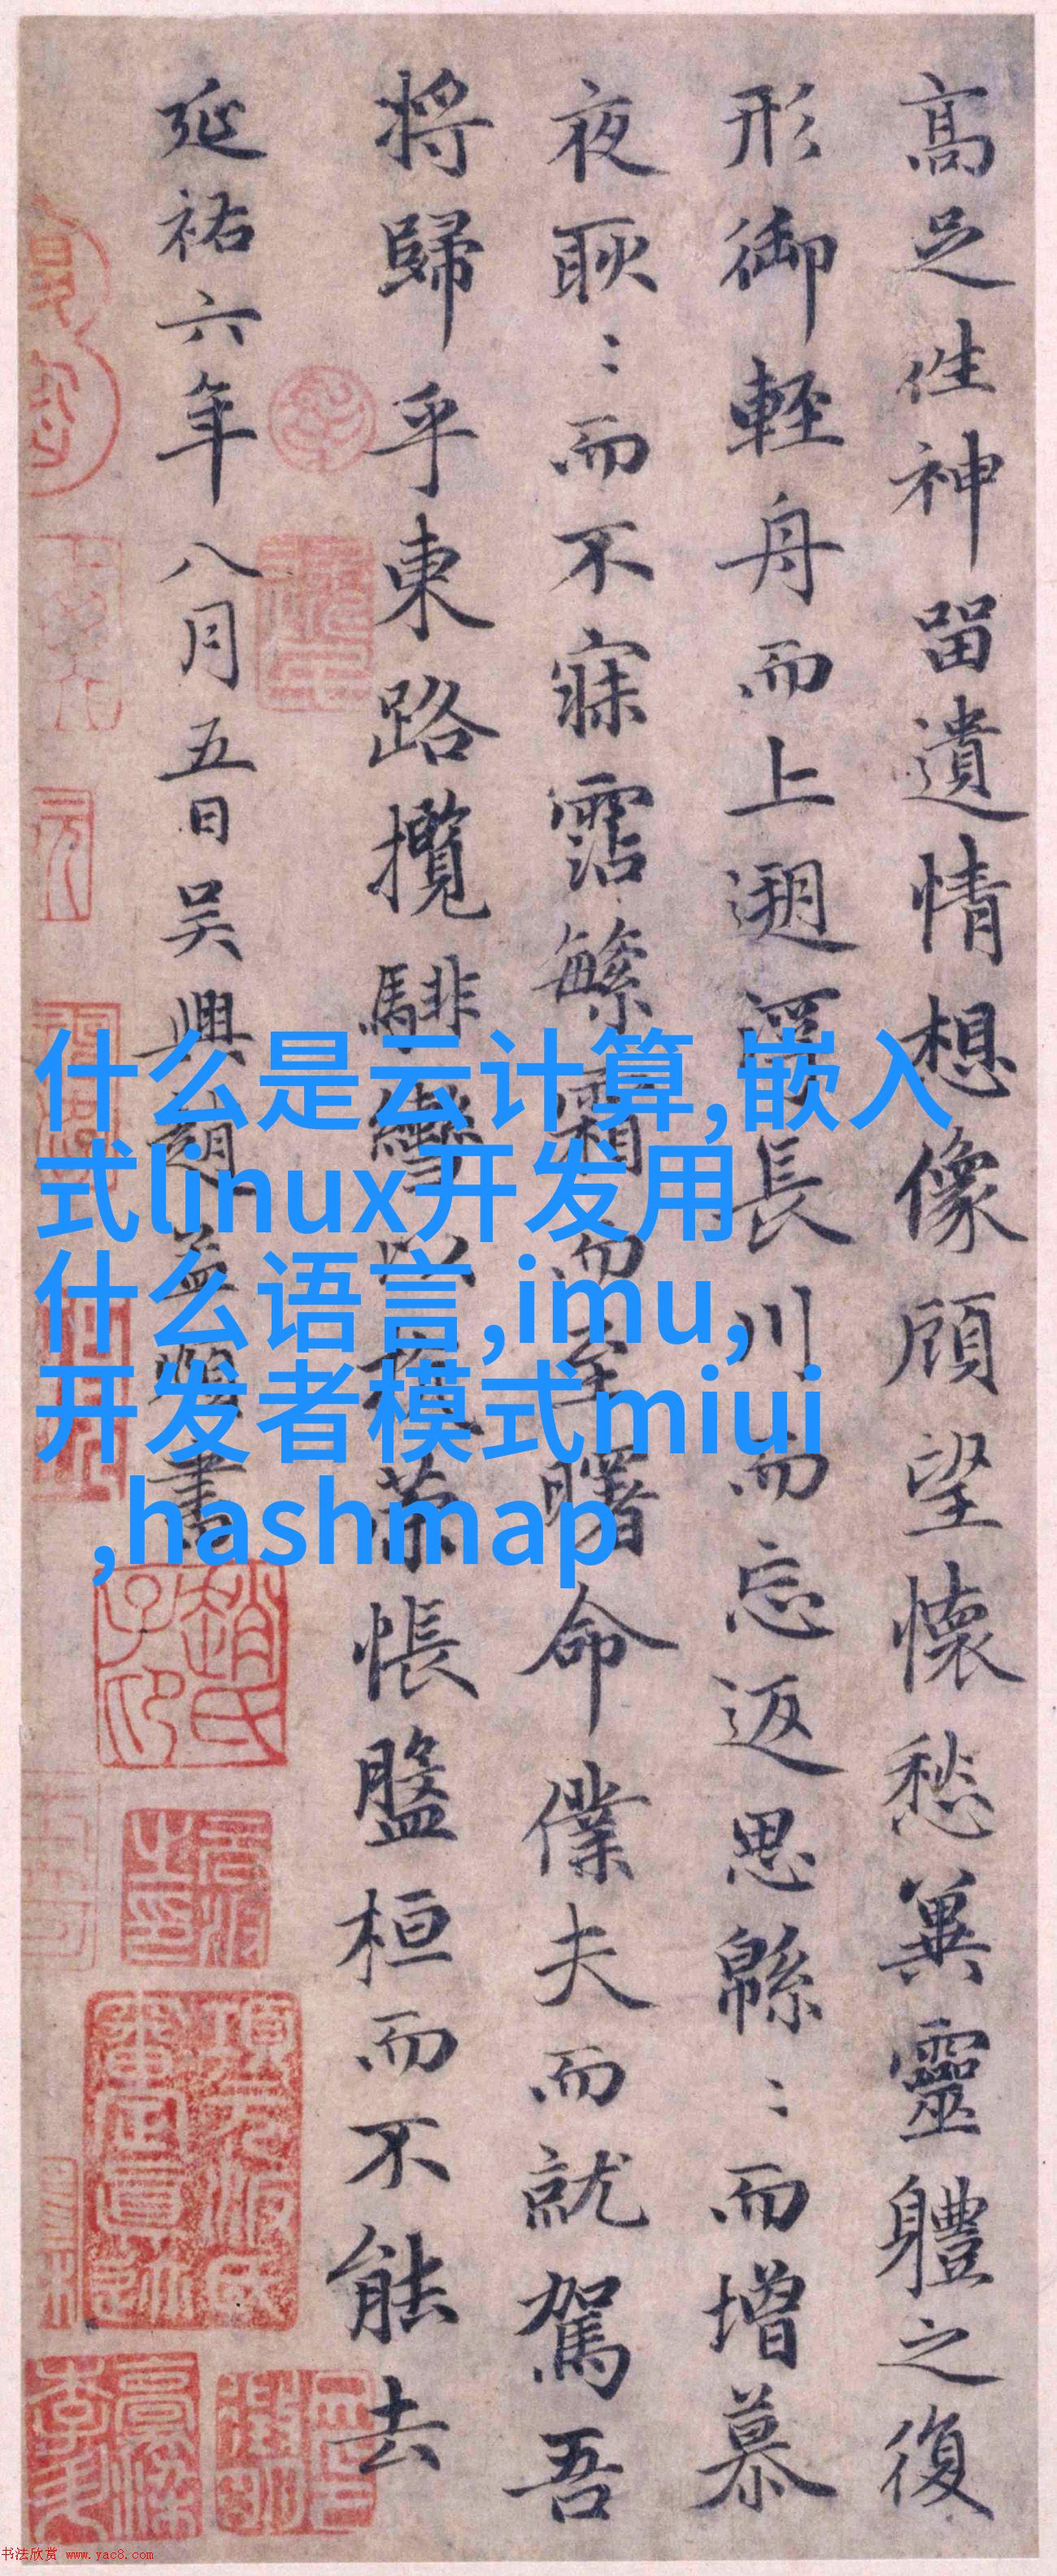 高足往神留遺情想像顧望懷愁兾靈軆之復
形御輕舟而上遡浮長川而忘返思緜〻而增慕
夜耿〻而不寐霑繁霜而至曙命僕夫而就駕吾
將歸乎東路攬騑轡以抗策悵盤桓而不能去
延祐六年八月五日吴興趙孟頫書
什么是云计算,嵌入
式linux开发用
什么语言,imu,
开发者模式miui
,hashmap
趙氏子印
書法欣赏 www.yac8.com